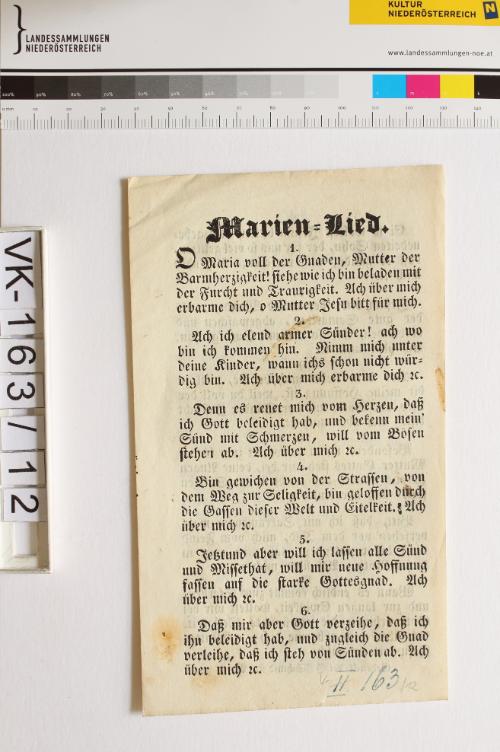 LANDESSAMMLUNGEN
NIEDERÖSTERREICH
KULTUR
NIEDERÖSTERREICH
www.landessammlungen-noe.at
VK-163/12
Marien-Lied.
1.
O Maria voll der Gnaden, Mutter der
Barmherzigkeit! siehe wie ich bin beladen mit
der Furcht und Traurigkeit. Ach über mich
erbarme dich, o Mutter Jesu bitt für mich.
2.
Ach ich elend armer Sünder! ach wo
bin ich kommen hin. Nimm mich unter
deine Kinder, wann ichs schon nicht wür-
dig bin. Ach über mich erbarme dich ꝛc.
3.
Denn es reuet mich vom Herzen, daß
ich Gott beleidigt hab, und bekenn mein'
Sünd mit Schmerzen, will vom Bösen
stehen ab. Ach über mich ꝛc.
4.
Bin gewichen von der Strassen, von
dem Weg zur Seligkeit, bin geloffen durch
die Gassen dieser Welt und Eitelkeit. Ach
über mich ꝛc.
5.
Jetztund aber will ich lassen alle Sünd
und Missethat, will mir neue Hoffnung
fassen auf die starke Gottesgnad. Ach
über mich ꝛc.
6.
Daß mir aber Gott verzeihe, daß ich
ihn beleidigt hab, und zugleich die Gnad
verleihe, daß ich steh von Sünden ab. Ach
über mich ꝛc.
II 163/12